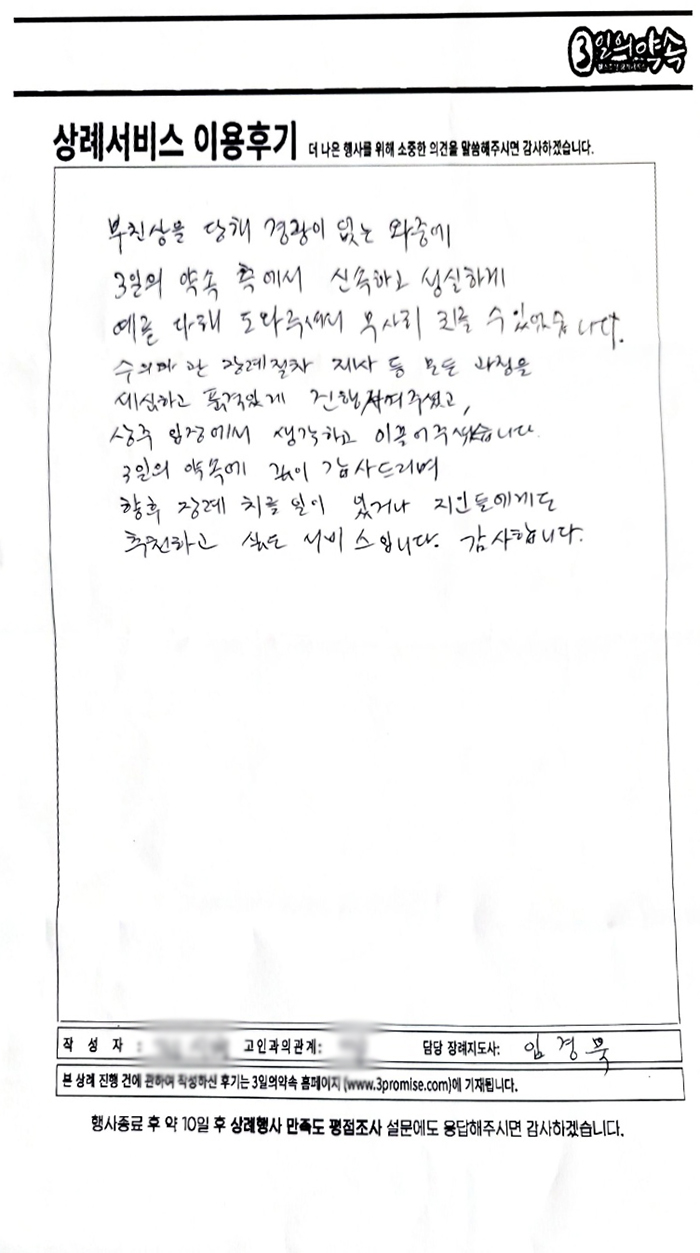 3일의약속
상례서비스 이용후기 더 나은 행사를 위해 소중한 의견을 말씀해주시면 감사하겠습니다.
부친상을 당해 경황이 없는 와중에
3일의 약속 측에서 신속하고 성실하게
예를 다해 도와주셔서 무사히 치를 수 있었습니다.
수의와 관 장례절차 제사 등 모든 과정을
세심하고 품격있게 진행하여주셨고,
상주 입장에서 생각하고 이끌어주셨습니다.
3일의 약속에 깊이 감사드리며
향후 장례 치를 일이 있거나 지인들에게도
추천하고 싶은 서비스입니다. 감사합니다.
작 성 자 : 고인과의관계: 담당 장례지도사: 임경묵
본 상례 진행 건에 관하여 작성하신 후기는 3일의약속 홈페이지 (www.3promise.com)에 기재됩니다.
행사종료 후 약 10일 후 상례행사 만족도 평점조사 설문에도 응답해주시면 감사하겠습니다.